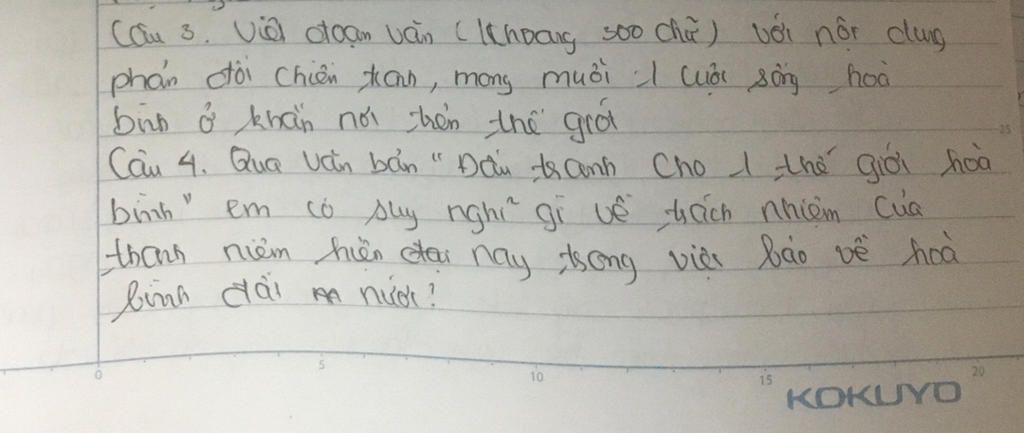 Câu 3. Viết đoạn văn (Khoảng 300 chữ) với nội dung
phản đối chiến tranh, mong muối 1 cuộc sống hoà
bình ở khắn nơi trên thế giới
Câu 4. Qua văn bản "Đấu tranh cho 1 thế giới hoà
bình" em có suy nghĩ gì về trách nhiệm của
thanh niêm hiện đại nay trong việc bảo vệ hoà
bình đất nước?
0 5 10 15 20
25
KOKUYO